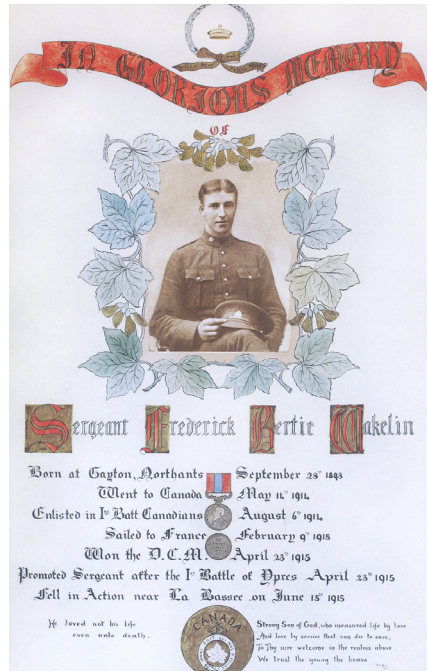 IN GLORIOUS MEMORY
OF
Sergeant Frederick Bertie Wakelin
Born at Gayton, Northants September 29th 1893
Went to Canada May 14th 1914
Enlisted in 1st Batt Canadians August 6th 1914
Sailed to France February 9th 1915
Won the D.C.M. April 23rd 1915
Promoted Sergeant after the 1st Battle of Ypres April 23rd 1915
Fell in Action near La Bassee on June 15th 1915
He loved not his life
even unto death.
Strong Son of God, who measured life by love
And love by service that can die to save,
To Thy sure welcome in the realms above
We trust the young the brave
CANADA